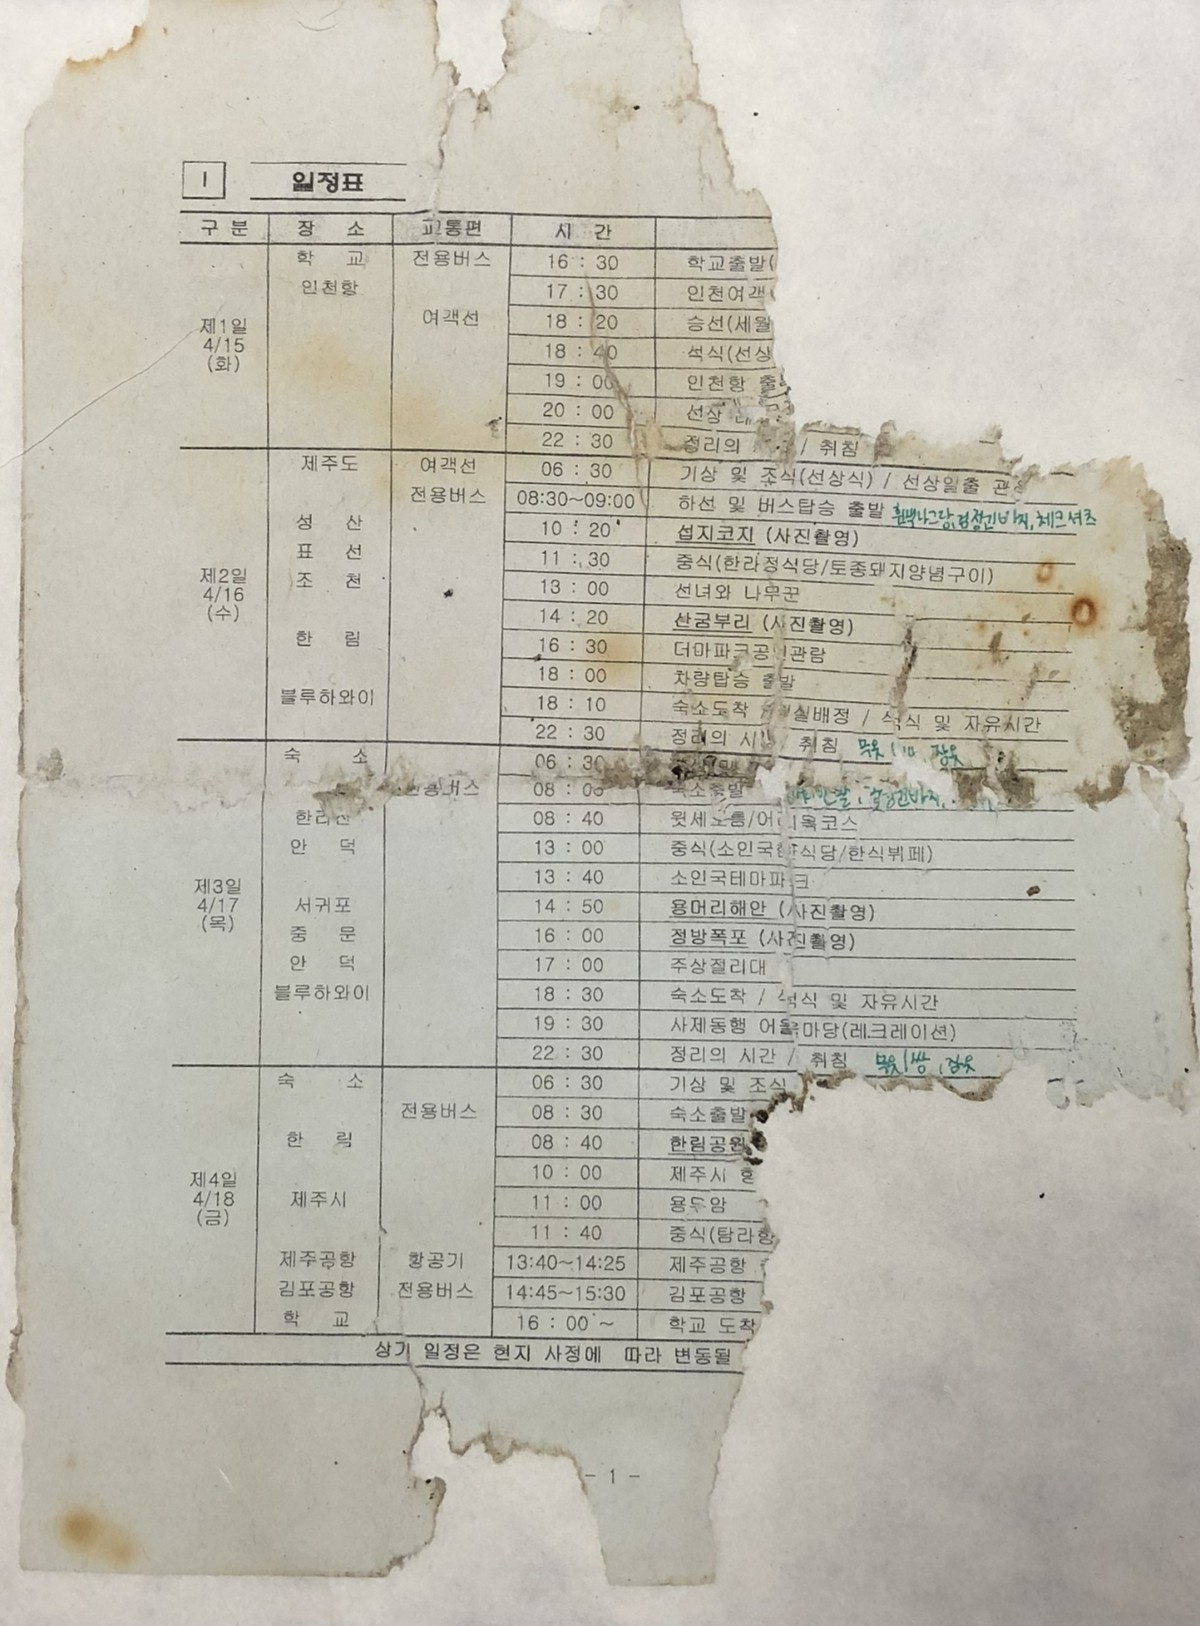 I 일정표
구 분 장 소 교통편 시 간
학 교 전용버스 16 : 30 학교출발(
인천항 17 : 30 인천여객
여객선 18 : 20 승선(세월
제1일 4/15 (화) 18 : 40 석식(선상
19 : 00 인천항
20 : 00 선상
22 : 30 정리의 / 취침
제주도 여객선 06 : 30 기상 및 조식(선상식) / 선상일출
전용버스 08:30~09:00 하선 및 버스탑승 출발 체크셔츠
성 산 10 : 20 섭지코지 (사진촬영)
표 선 11 : 30 중식(한라정식당/토종돼지양념구이)
제2일 4/16 (수) 조 천 13 : 00 선녀와 나무꾼
14 : 20 산굼부리 (사진촬영)
한 림 16 : 30 더마파크공연관람
18 : 00 차량탑승 출발
블루하와이 18 : 10 숙소도착 실배정 / 석식 및 자유시간
22 : 30 정리의 시 취침 잠옷
숙 소 06 : 30
08 : 00 숙소출발
08 : 40 윗세오름/어리목코스
안 덕 13 : 00 중식(소인국 식당/한식뷔페)
13 : 40 소인국테마파크
제3일 4/17 (목) 서귀포 14 : 50 용머리해안 (사진촬영)
중 문 16 : 00 정방폭포 (사진촬영)
안 덕 17 : 00 주상절리대
블루하와이 18 : 30 숙소도착 / 석식 및 자유시간
19 : 30 사제동행 어울마당(레크레이션)
22 : 30 정리의 시간 / 취침 잠옷
숙 소 06 : 30 기상 및 조식
전용버스 08 : 30 숙소출발
한 림 08 : 40 한림공원
10 : 00 제주시
제4일 4/18 (금) 제주시 11 : 00 용두암
11 : 40 중식(탐라
제주공항 항공기 13:40~14:25 제주공항
김포공항 전용버스 14:45~15:30 김포공항
학 교 16 : 00 ~ 학교 도착
상기 일정은 현지 사정에 따라 변동될
- 1 -